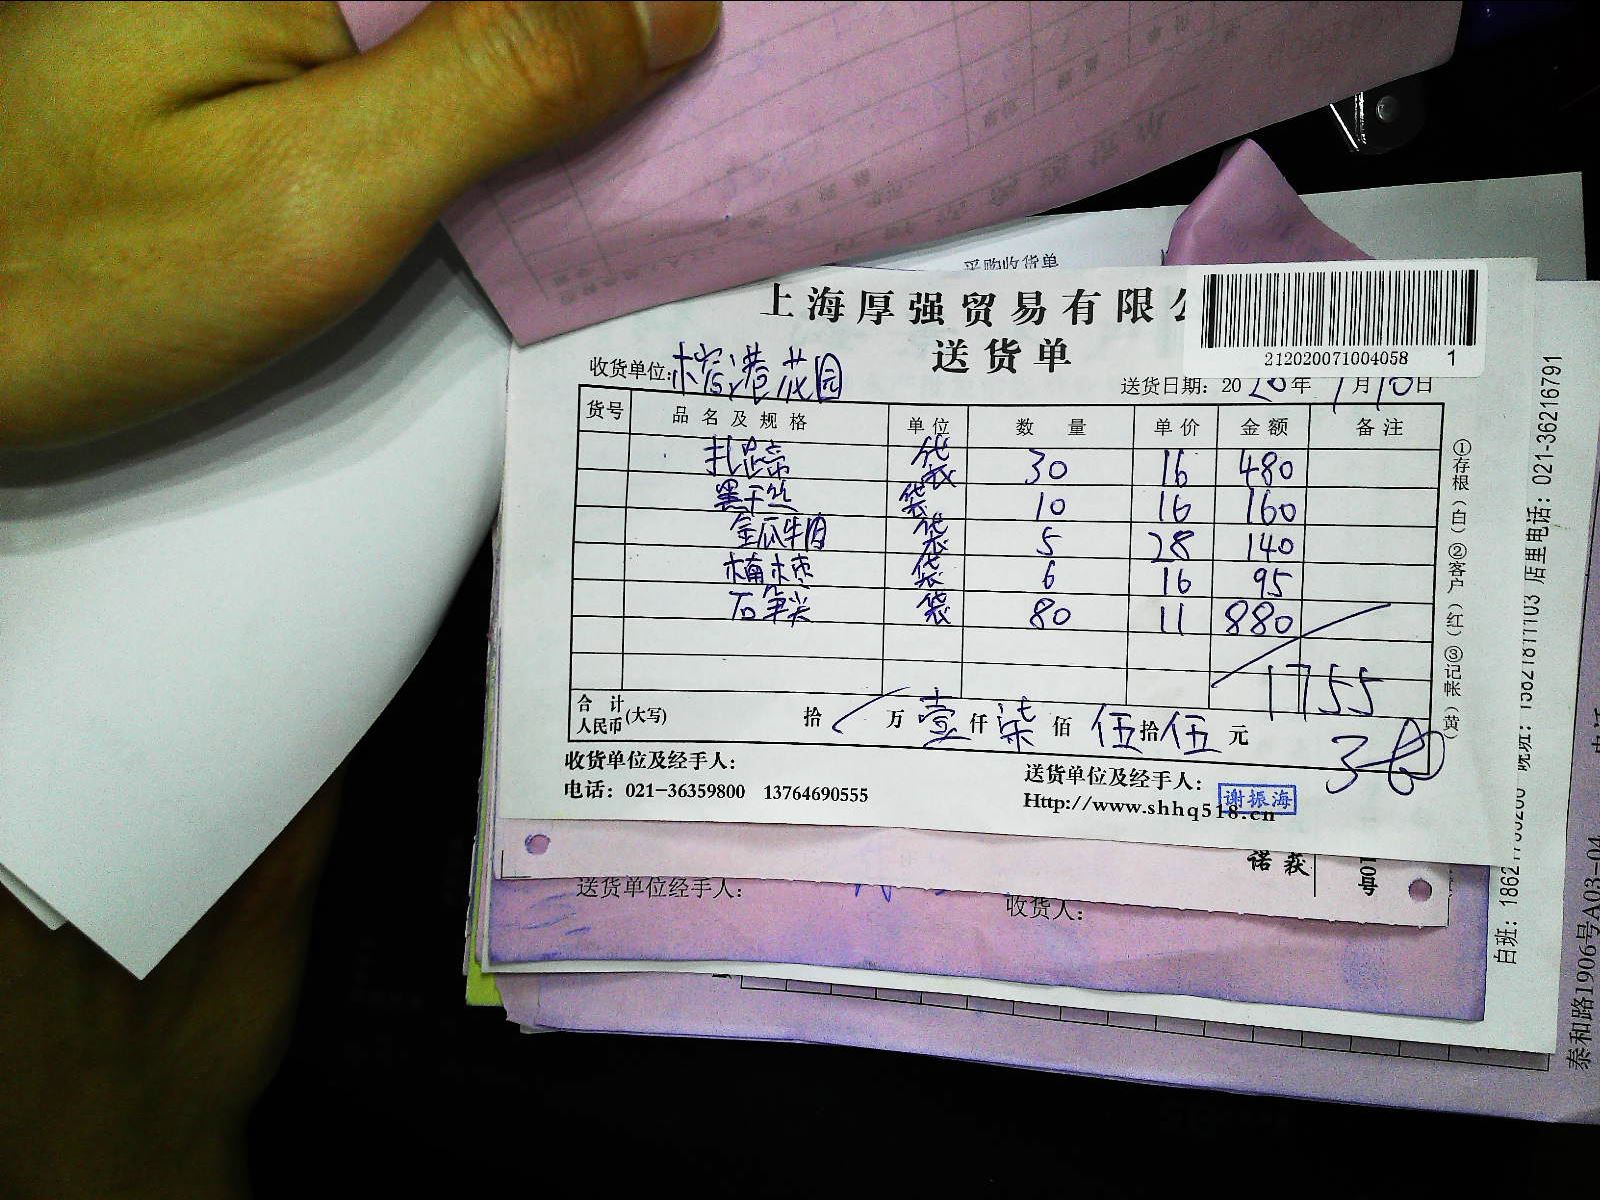 采购收货单
上海厚强贸易有限公
212020071004058 1
送货单
收货单位: 榕港花园
送货日期: 2020年7月10日
货号 品名及规格 单位 数量 单价 金额 备注
扎蹄 袋 30 16 480
黑干丝 袋 10 16 160
金瓜牛肉 袋 5 28 140
袋 6 16 95
石笋尖 袋 80 11 880
1755
合计人民币(大写) 拾 万 壹仟柒佰伍拾伍元
36
收货单位及经手人:
送货单位及经手人:
电话: 021-36359800 13764690555
Http://www.shhq518.cn
谢振海
①存根(白)②客户(红)③记帐(黄)
诺荻
号
送货单位经手人:
收货人:
店里电话: 021-36216791
白班:
晚班:
泰和路1906号A03-04